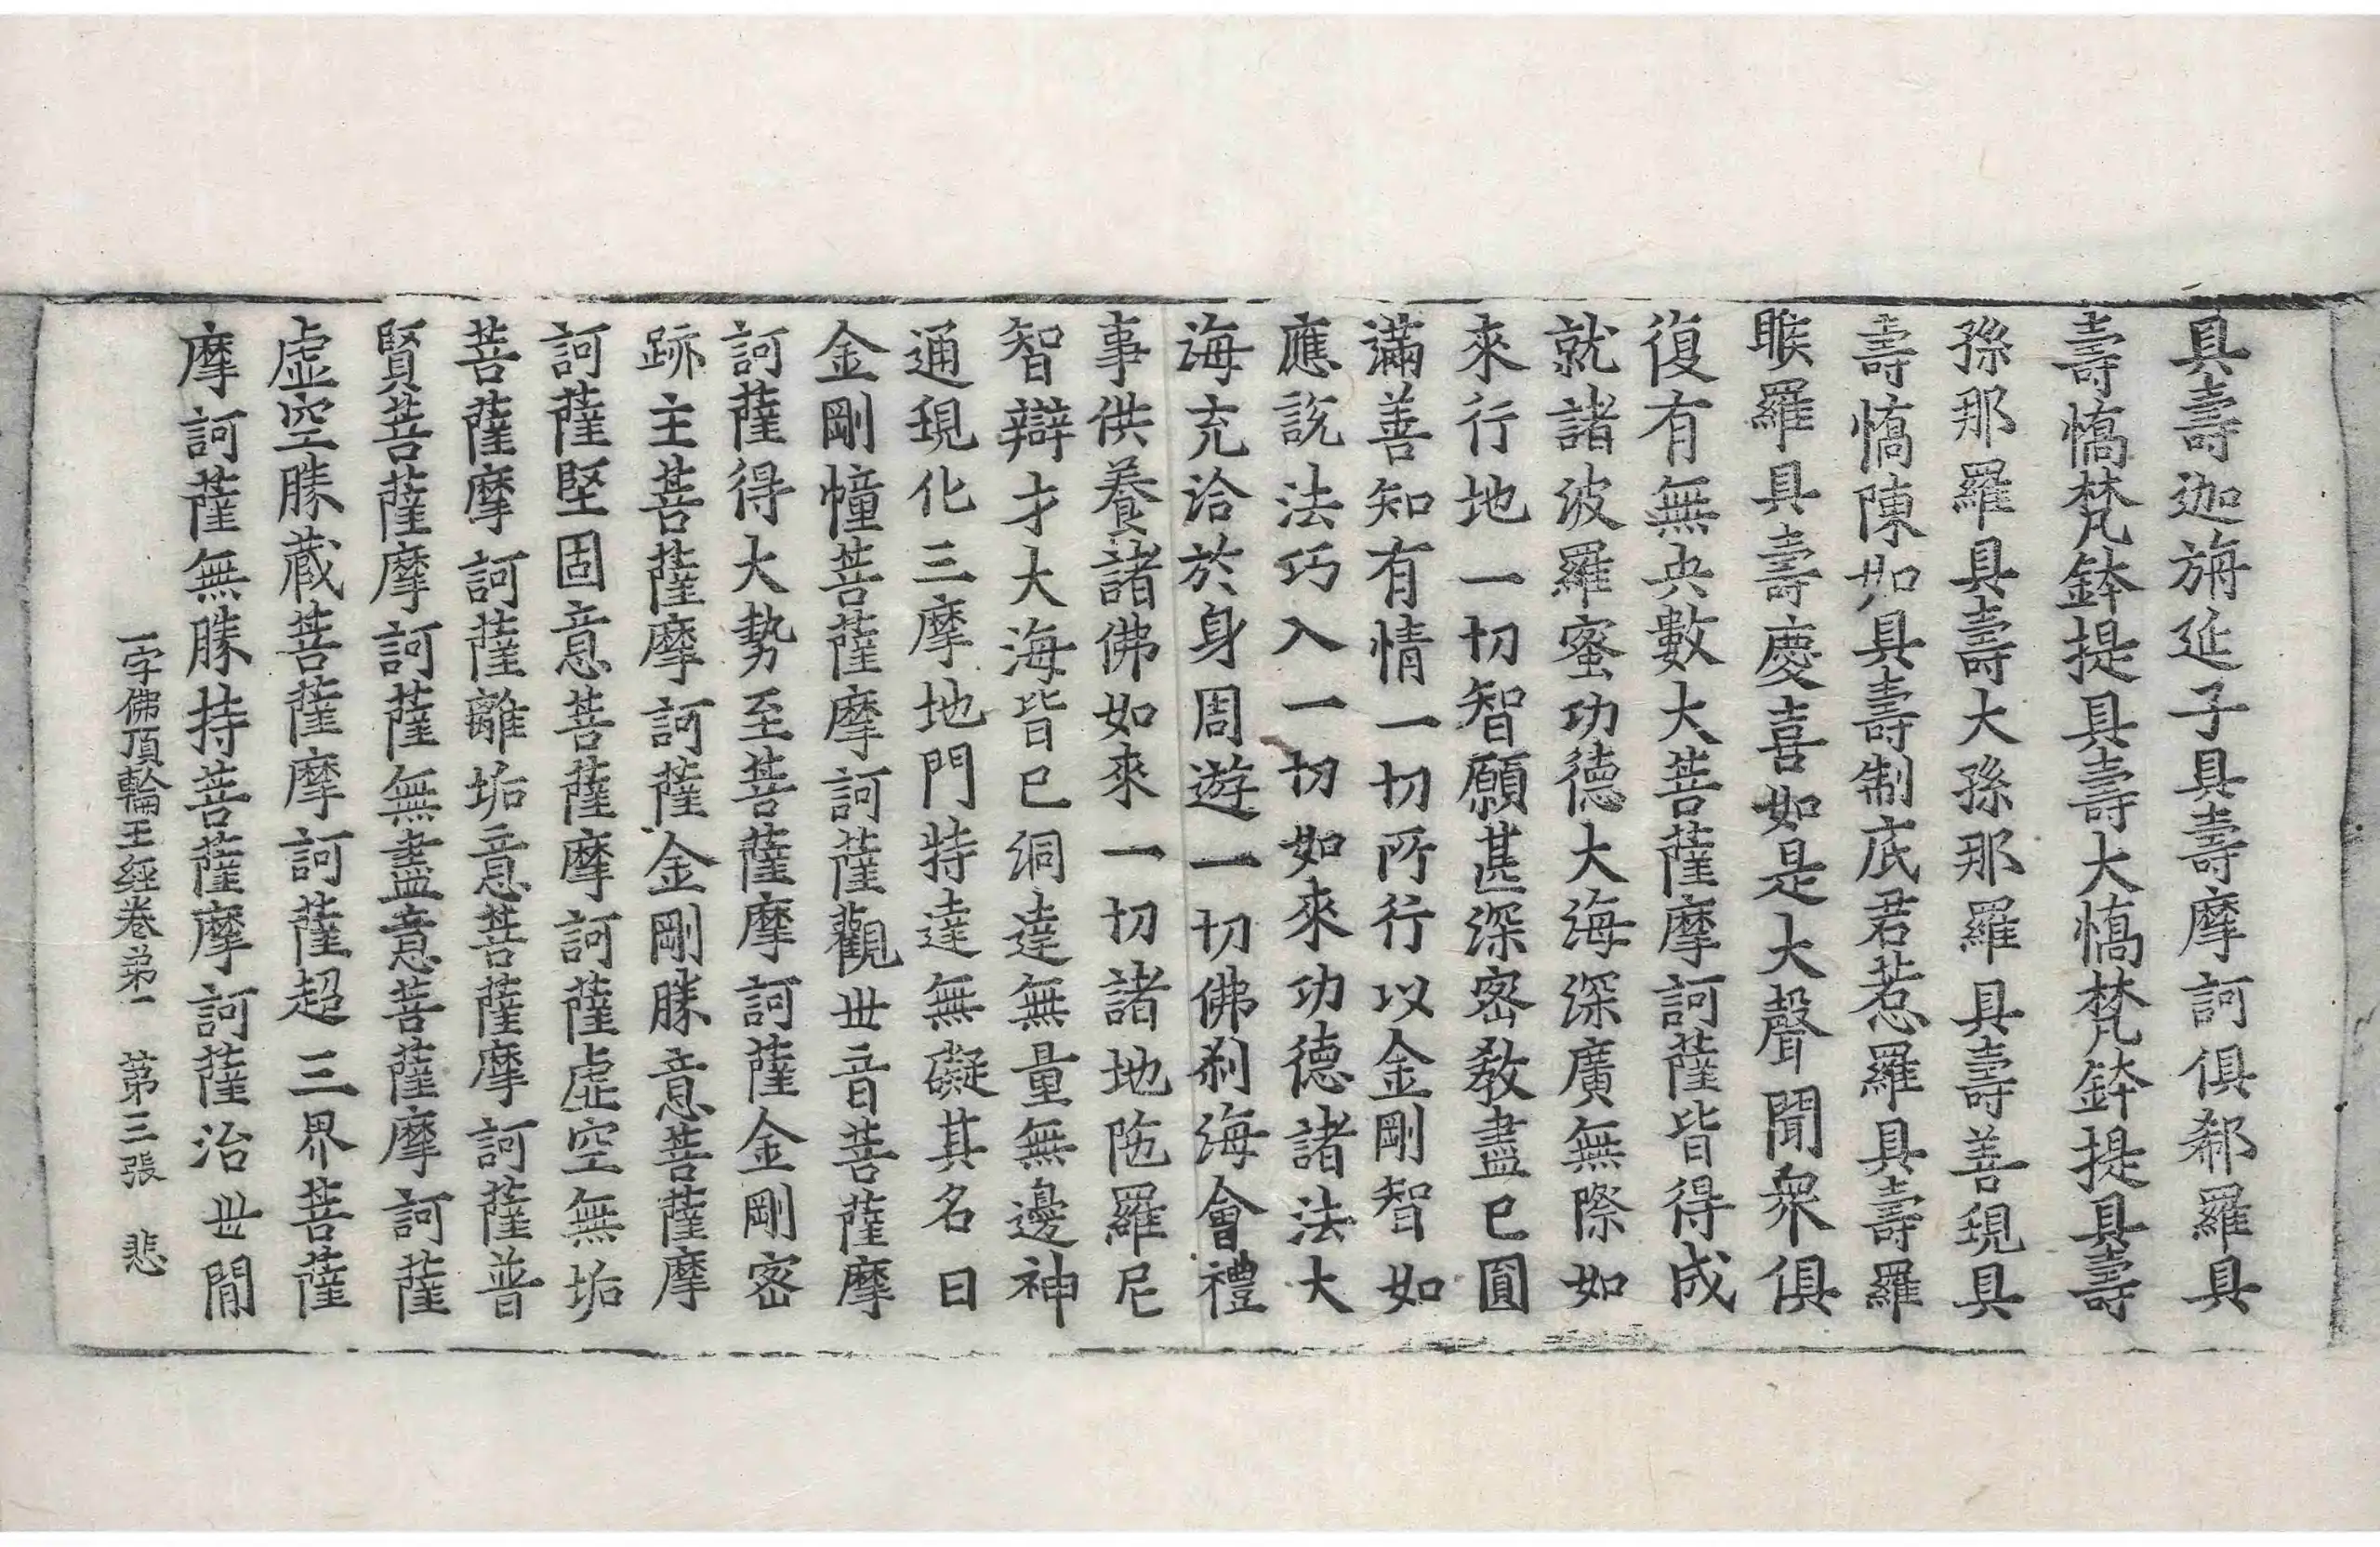 具壽迦旃延子具壽摩訶俱郗羅具
壽憍梵鉢提具壽大憍梵鉢提具壽
孫那羅具壽大孫那羅具壽善現具
壽憍陳如具壽制底君惹羅具壽羅
睺羅具壽慶喜如是大聲聞衆俱
復有無央數大菩薩摩訶薩皆得成
就諸波羅蜜功德大海深廣無際如
來行地一切智願甚深密教盡已圓
滿善知有情一切所行以金剛智如
應說法巧入一切如來功德諸法大
海充洽於身周遊一切佛刹海會禮
事供養諸佛如來一切諸地陁羅尼
智辯才大海皆已洞達無量無邊神
通現化三摩地門特達無礙其名曰
金剛幢菩薩摩訶薩觀世音菩薩摩
訶薩得大勢至菩薩摩訶薩金剛密
跡主菩薩摩訶薩金剛勝意菩薩摩
訶薩堅固意菩薩摩訶薩虛空無垢
菩薩摩訶薩離垢意菩薩摩訶薩普
賢菩薩摩訶薩無盡意菩薩摩訶薩
虛空勝藏菩薩摩訶薩超三界菩薩
摩訶薩無勝持菩薩摩訶薩治世間
一字佛頂輪王經卷第一 第三張 悲